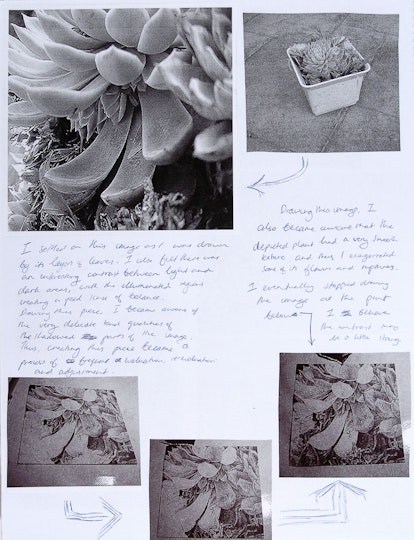 I settled on this image as I was drawn
by its layers & leaves. I also felt there was
an interesting contrast between light and
dark areas, with the illuminated regions
creating a good sense of balance.
Drawing this piece I became aware of
the very delicate tonal qualities of
the shadowed parts of the image.
Thus, creating this piece became a
process of frequent evaluation, re-evaluation
and adjustment.
Drawing this image, I
also became aware that the
depicted plant had a very smooth
texture and thus I exaggerated
some of its flaws and ruptures.
I eventually stopped drawing
the image at the point
below I believe
the contrast may
be a little strong.